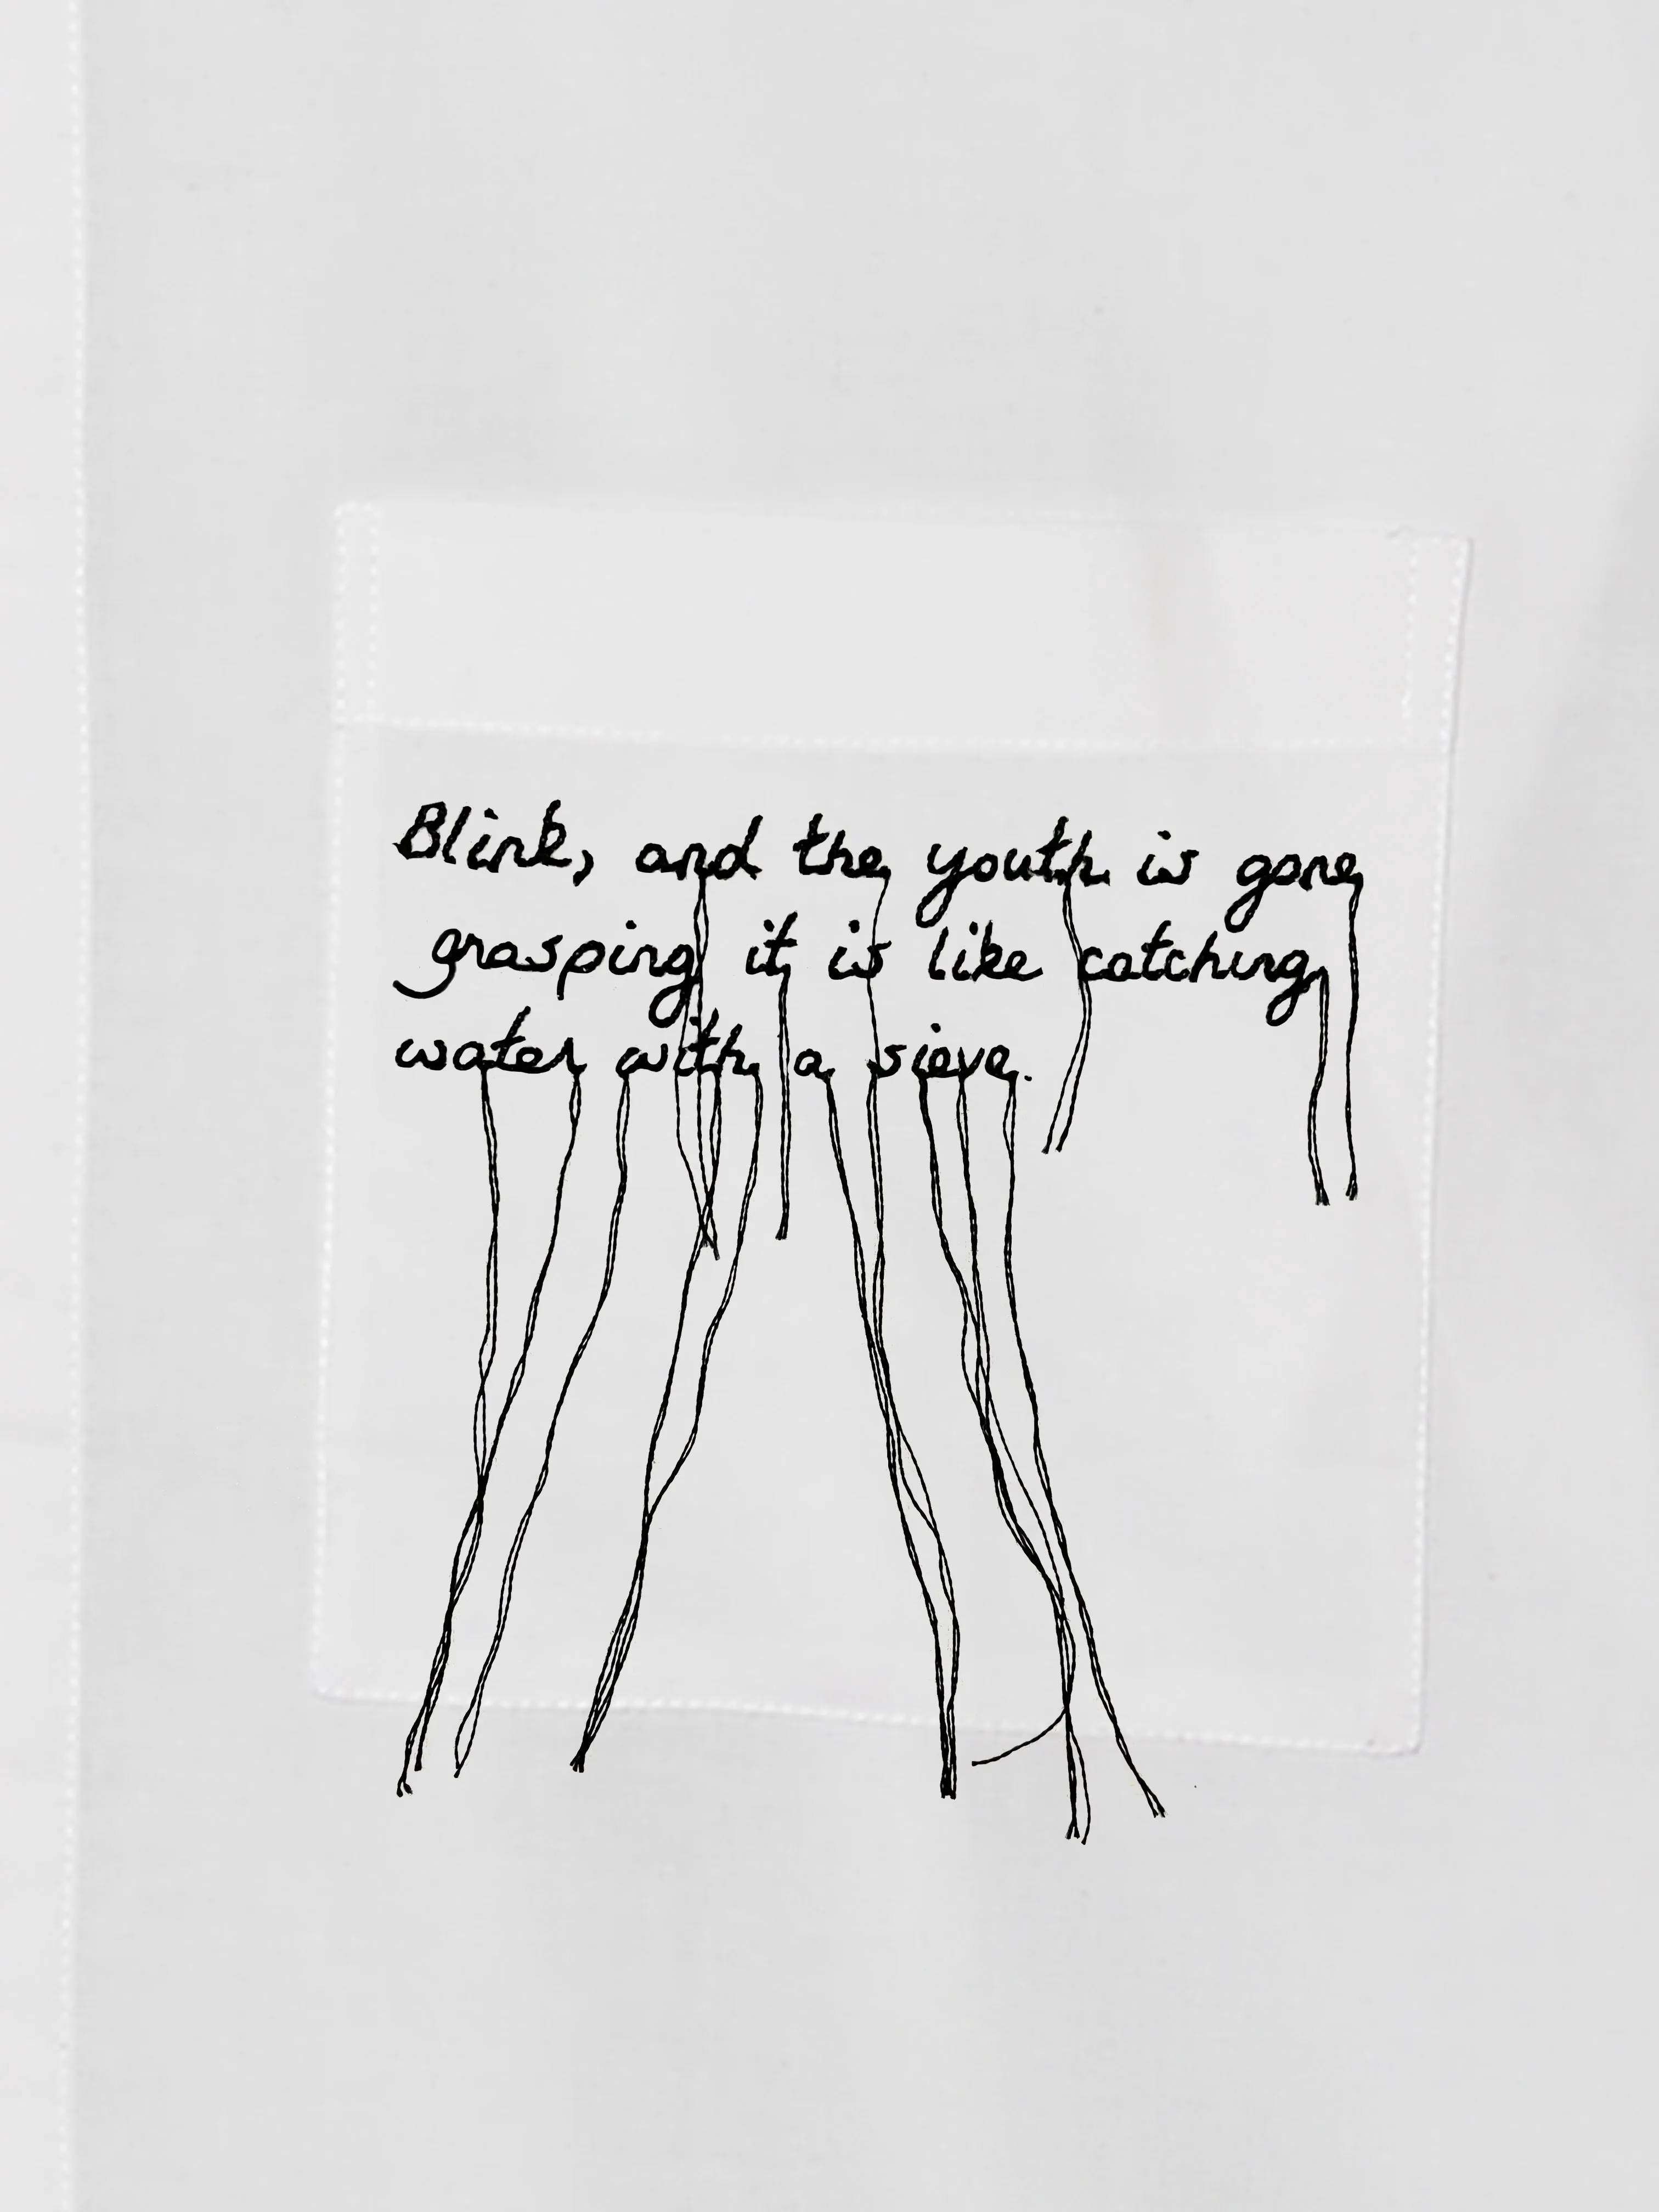 Blink, and the youth is gone
grasping it is like catching
water with a sieve.